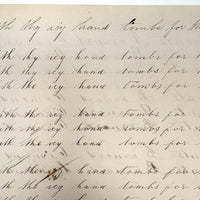 th thy icy hand tombs for
ith thy icy hand tombs for
ith thy icy hand tombs for
ith the icy hand tombs for
ith the icy hand tombs for
ith the icy hand tombs for
ith the icy hand tombs for
ith hand tombs for
ith the icy hand tombs for
ith the icy hand tombs for